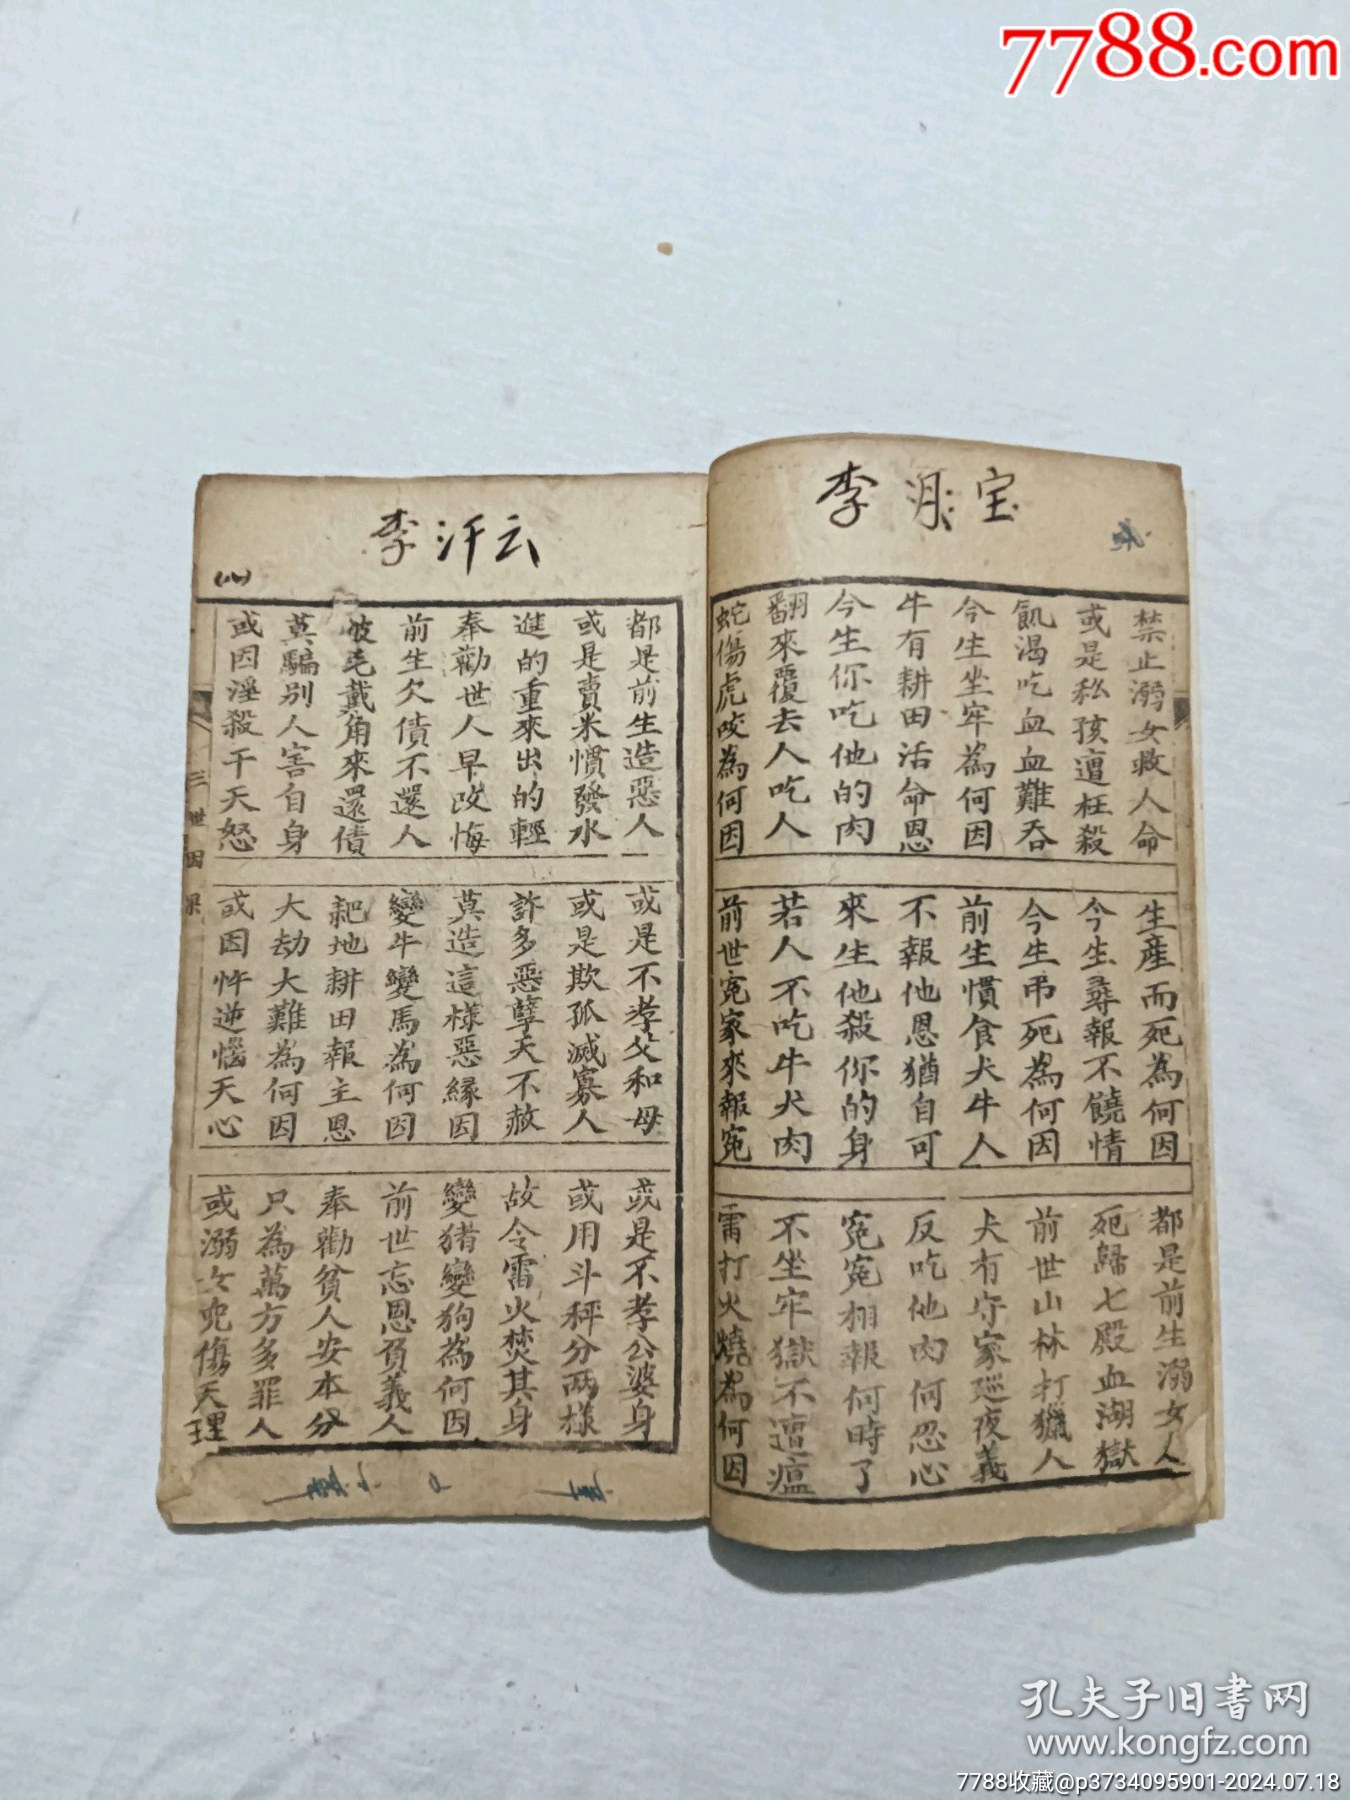 7788.com
李 月 宝
禁止溺女救人命
生産而死為何因
都是前生溺女人
或是私孩遭枉殺
今生尋報不饒情
死歸七殿血湖獄
飢渴吃血血難吞
今生弔死為何因
前世山林打獵人
今生坐牢為何因
前生慣食犬牛人
犬有守家巡夜義
牛有耕田活命恩
不報他恩猶自可
反吃他肉何忍心
今生你吃他的肉
來生他殺你的身
冤冤相報何時了
翻來覆去人吃人
若人不吃牛犬肉
不坐牢獄不遭瘟
蛇傷虎咬為何因
前世冤家來報冤
雷打火燒為何因
李 汗 云
都是前生造惡人
或是不孝父和母
或是不孝公婆身
或是賣米慣發水
或是欺孤滅寡人
或用斗秤分兩樣
進的重來出的輕
許多惡孽天不赦
故令雷火焚其身
奉勸世人早改悔
莫造這樣惡緣因
變猪變狗為何因
前生欠債不還人
變牛變馬為何因
前世忘恩負義人
披毛戴角來還債
耙地耕田報主恩
奉勸貧人安本分
莫騙別人害自身
大劫大難為何因
只為萬方多罪人
或因淫殺干天怒
或因忤逆惱天心
或溺女兒傷天理
三世因果
孔夫子旧書网
www.kongfz.com
7788收藏@p3734095901-2024.07.18